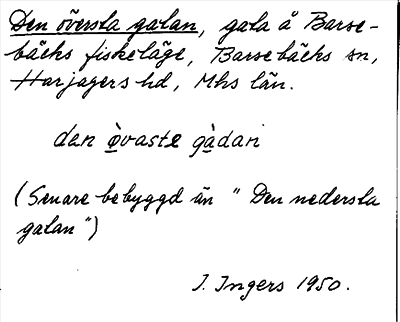 Den översta gatan, gata å Barse-
bäcks fiskeläge, Barsebäcks sn,
Harjagers hd, Mhs län.
den ò̱vaste gà̱dan
(Senare bebyggd än "Den nedersta
gatan")
I. Ingers 1950.